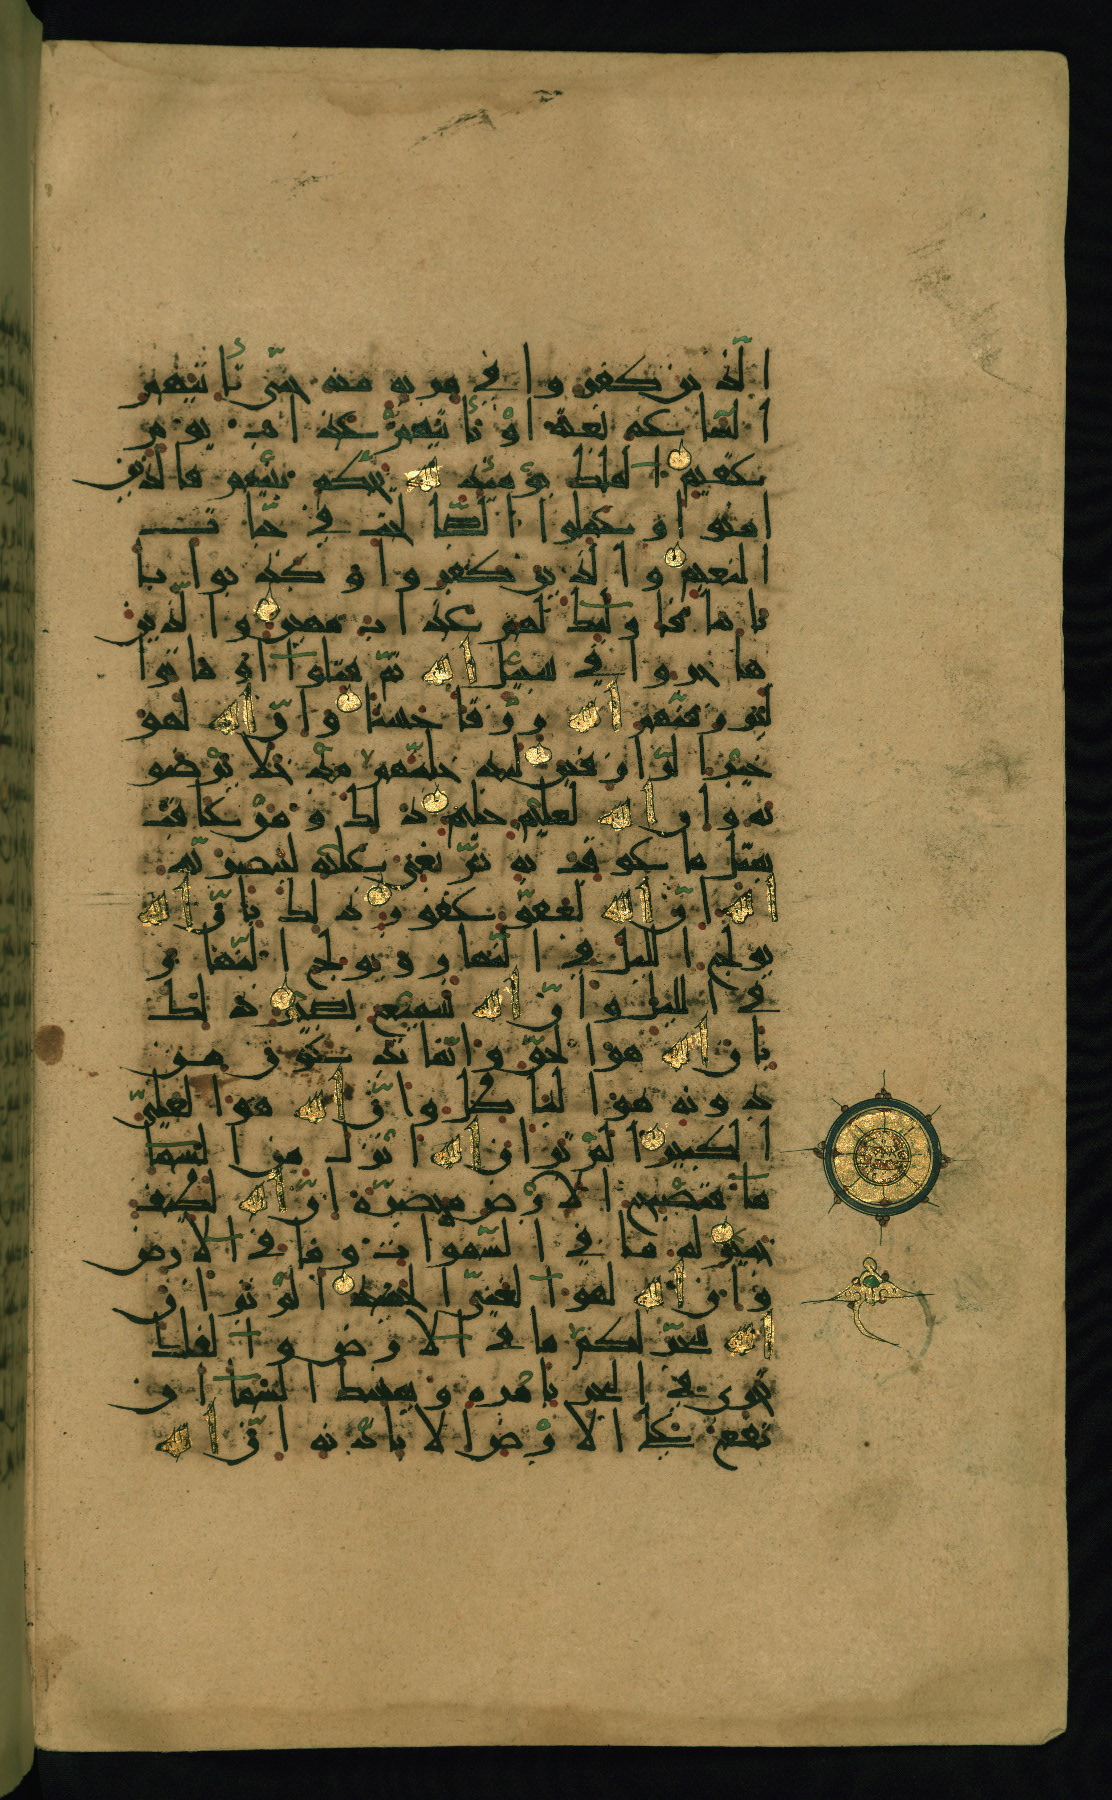 الذين كفروا في مرية منه حتى تأتيهم
الساعة بغتة أو يأتيهم عذاب يوم
عقيم الملك يومئذ لله يحكم بينهم فالذين
امنوا وعملوا الصالحات في جنات
النعيم والذين كفروا وكذبوا بآ
ياتنا فأولئك لهم عذاب مهين والذين
هاجروا في سبيل الله ثم قتلوا أو ماتوا
ليرزقنهم الله رزقا حسنا وإن الله لهو
خير الرازقين ليدخلنهم مدخلا يرضو
نه وإن الله لعليم حليم ذلك ومن عاقب
بمثل ما عوقب به ثم بغي عليه لينصرنه
الله إن الله لعفو غفور ذلك بأن الله
يولج الليل في النهار ويولج النهار
في الليل وأن الله سميع بصير ذلك
بأن الله هو الحق وأنما يدعون من
دونه هو الباطل وأن الله هو العلي
الكبير ألم تر أن الله أنزل من السما
ماء فتصبح الأرض مخضرة إن الله لطيف
خبير له ما في السموات وما في الأرض
وإن الله لهو الغني الحميد ألم تر أن
الله سخر لكم ما في الأرض والفلك
تجري في البحر بأمره ويمسك السماء أن
تقع على الأرض إلا بإذنه إن الله